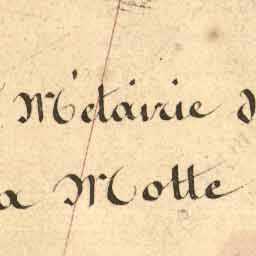 Métairie d
a Motte